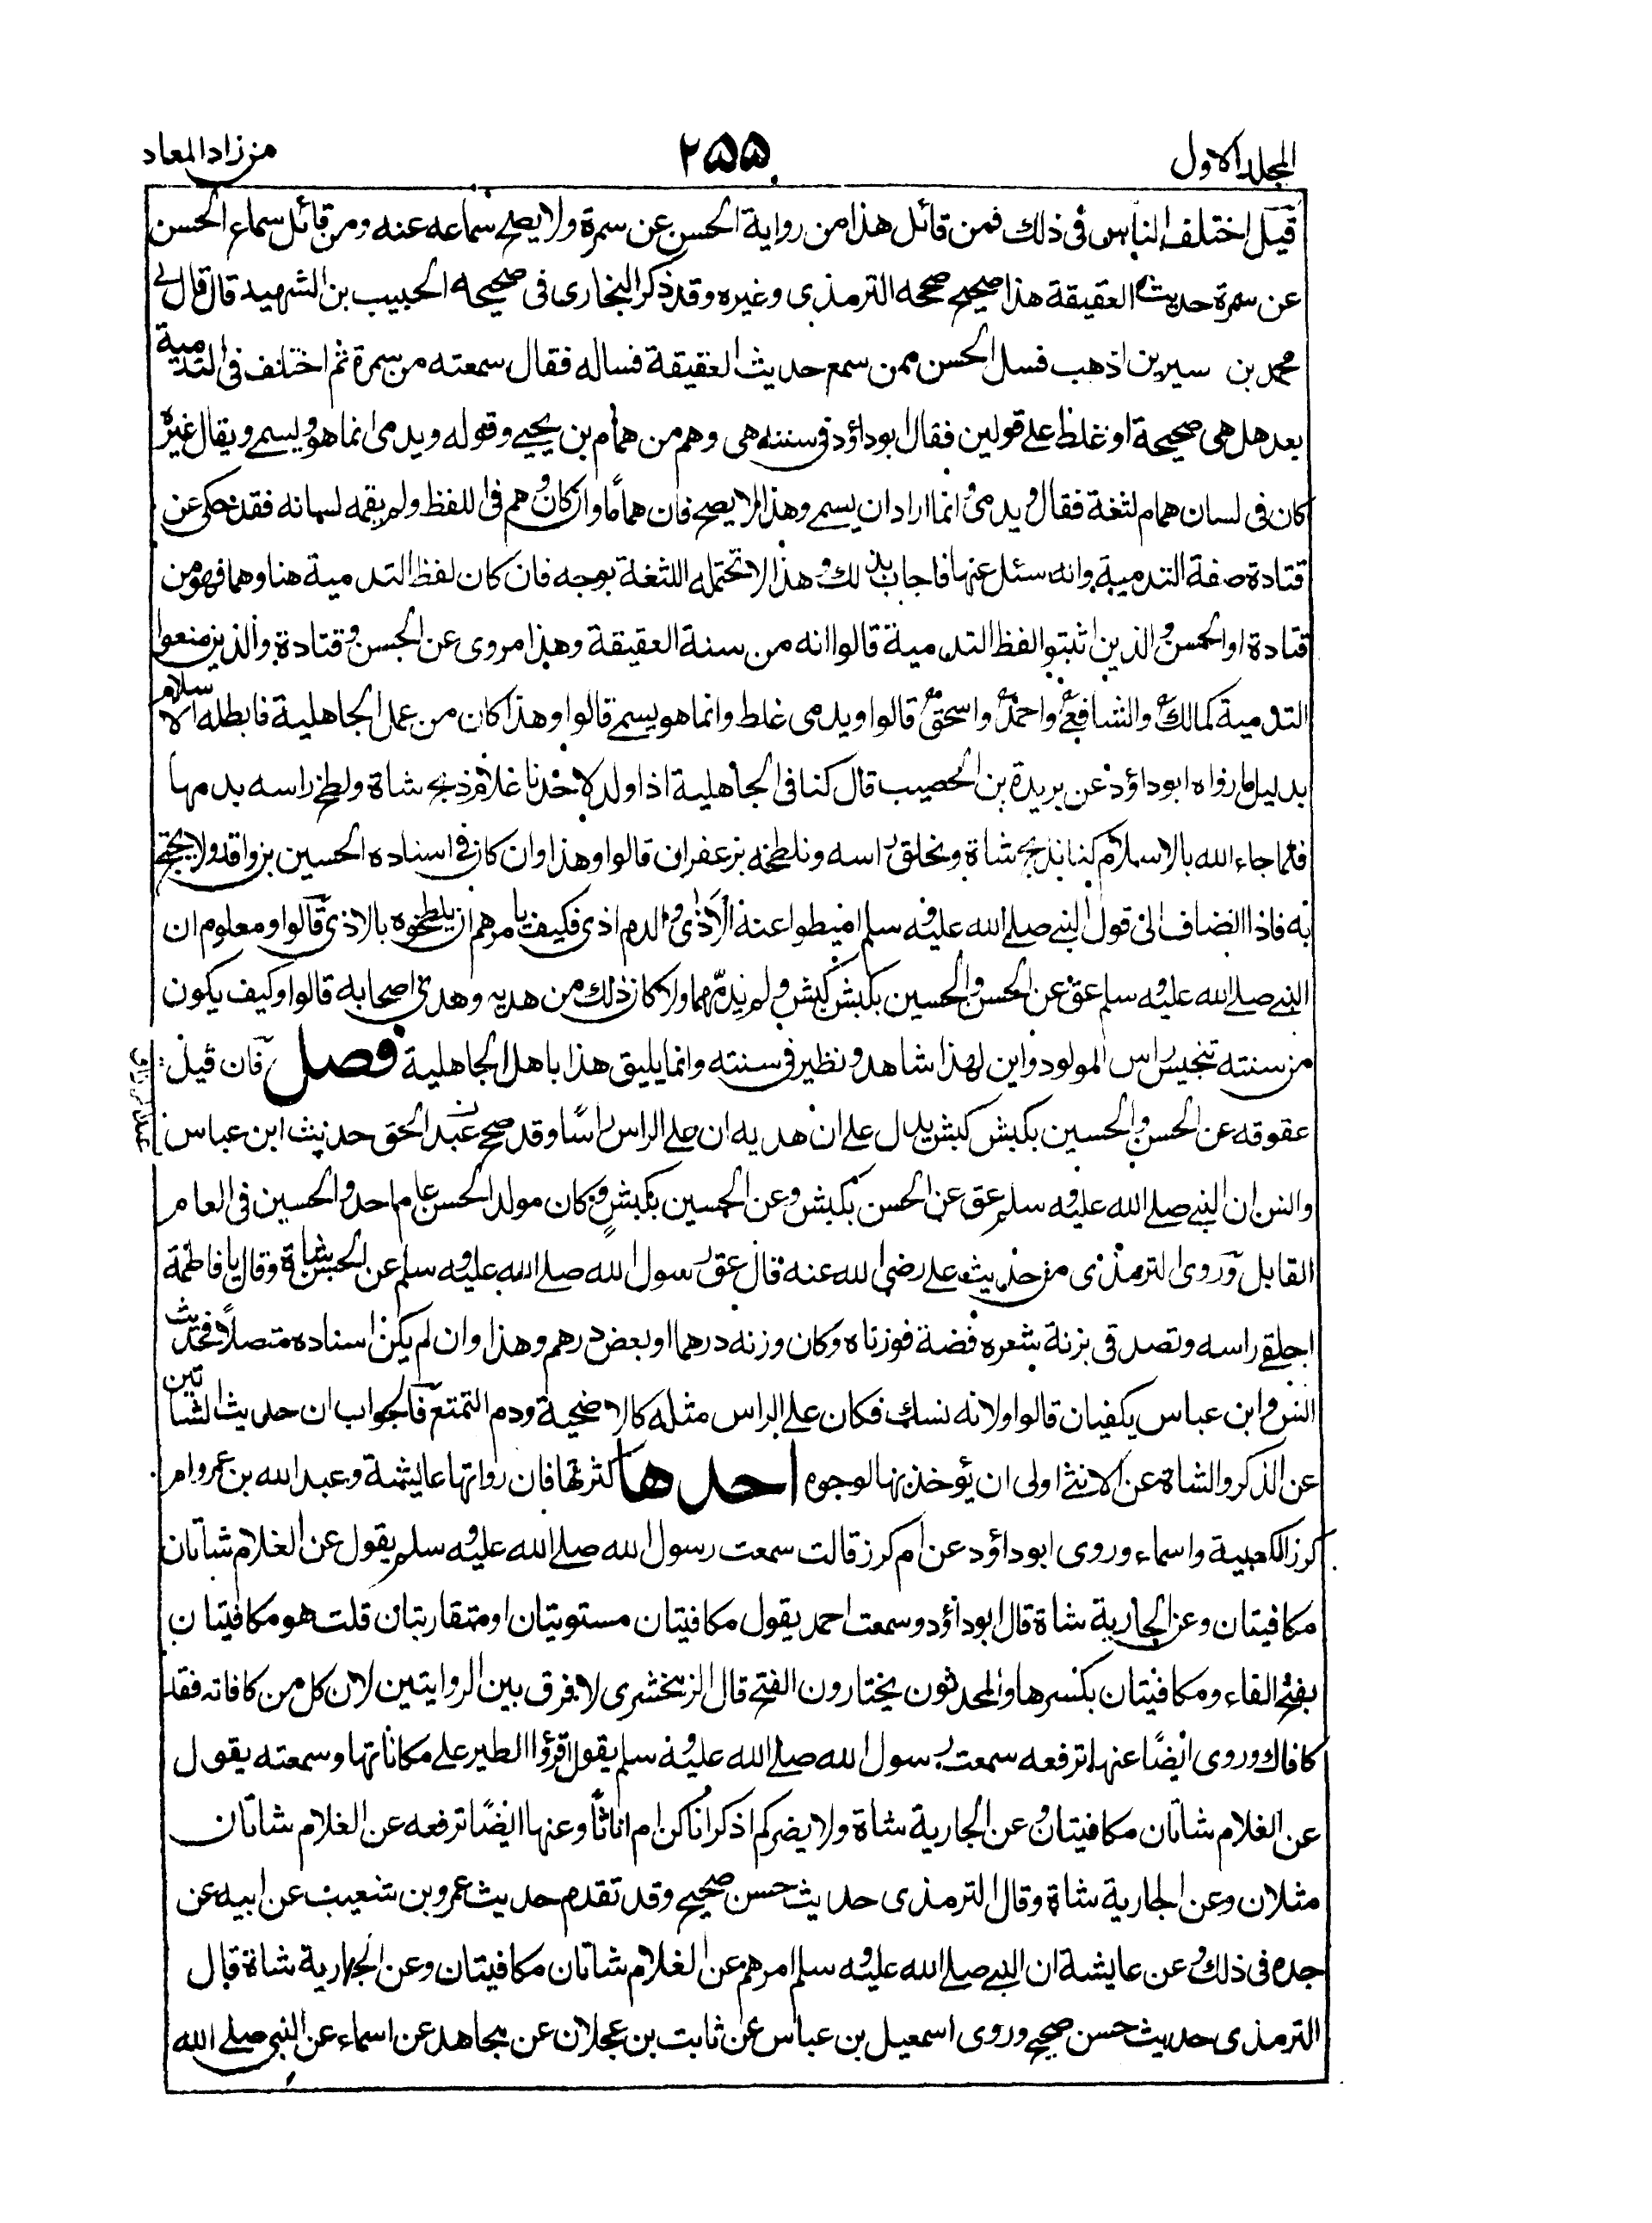 المجلد الاول
٢٥٥
من زاد المعاد
قيل اختلف الناس فى ذلك فمن قائل هذا من رواية الحسن عن سمرة ولا يصح سماعه عنه ومن قائل سماع الحسن
عن سمرة حديث العقيقة هذا صحيح صححه الترمذى وغيره وقد ذكر البخارى فى صحيحه الحبيب بن الشهيد قال قال لى
محمد بن سيرين اذهب فسل الحسن ممن سمع حديث العقيقة فساله فقال سمعته من سمرة ثم اختلف فى التدمية
بعد هل هى صحيحة او غلط على قولين فقال ابو داؤد فى سننه هى وهم من همام بن يحيى وقوله ويدمى انما هو ويسمى ويقال غيره
كان فى لسان همام لثغة فقال ويدمى وانما اراد ان يسمى وهذا لا يصح فان هماما وان كان وهم فى اللفظ ولم يقمه لسانه فقد حكى عن
قتادة صفة التدمية وانه سئل عنها فاجاب بذلك وهذا لا تحتمله اللثغة بوجه فان كان لفظ التدمية هنا وهما فهو من
قتادة او الحسن والذين اثبتوا لفظ التدمية قالوا انه من سنة العقيقة وهذا مروى عن الحسن وقتادة والذين منعوا
التدمية كمالك والشافعى واحمد واسحق قالوا ويدمى غلط وانما هو يسمى قالوا وهذا كان من عمل الجاهلية فابطله الاسلام
بدليل ما رواه ابو داؤد عن بريدة بن الحصيب قال كنا فى الجاهلية اذا ولد لاحدنا غلام ذبح شاة ولطخ راسه بدمها
فلما جاء الله بالاسلام كنا نذبح شاة ونحلق راسه ونلطخه بزعفران قالوا وهذا وان كان فى اسناده الحسين بن واقد ولا يحتج
به فاذا انضاف الى قول النبى صلى الله عليه وسلم اميطوا عنه الاذى والدم اذى فكيف يامرهم ان يلطخوه بالاذى قالوا ومعلوم ان
النبى صلى الله عليه وسلم عق عن الحسن والحسين بكبش كبش ولم يدمهما ولا كان ذلك من هديه وهدى اصحابه قالوا وكيف يكون
من سنته تنجيس راس المولود واين لهذا شاهد ونظير فى سنته وانما يليق هذا باهل الجاهلية فصل فان قيل
عقوقه عن الحسن والحسين بكبش كبش يدل على ان هديه ان على الراس راسًا وقد صحح عبد الحق حديث ابن عباس
وانس ان النبى صلى الله عليه وسلم عق عن الحسن بكبش وعن الحسين بكبش وكان مولد الحسن عام احد والحسين فى العام
القابل وروى الترمذى من حديث على رضى الله عنه قال عق رسول الله صلى الله عليه وسلم عن الحسن شاة وقال يا فاطمة
احلقى راسه وتصدقى بزنة شعره فضة فوزناه وكان وزنه درهما او بعض درهم وهذا وان لم يكن اسناده متصلًا فحديث
انس وابن عباس يكفيان قالوا ولانه نسك فكان على الراس مثله كالاضحية ودم التمتع فالجواب ان حديث الشاتين
عن الذكر والشاة عن الانثى اولى ان يؤخذ بها لوجوه احدها كثرتها فان رواتها عايشة وعبد الله بن عمرو وام
كرز الكعبية واسماء وروى ابو داؤد عن ام كرز قالت سمعت رسول الله صلى الله عليه وسلم يقول عن الغلام شاتان
مكافيتان وعن الجارية شاة قال ابو داؤد وسمعت احمد يقول مكافيتان مستويتان او متقاربتان قلت هو مكافيتان
بفتح الفاء ومكافيتان بكسرها والمحدثون يختارون الفتح قال الزمخشرى لا فرق بين الروايتين لان كل من كافاته فقد
كافاك وروى ايضًا عنها ترفعه سمعت رسول الله صلى الله عليه وسلم يقول اقرؤا الطير على مكاناتها وسمعته يقول
عن الغلام شاتان مكافيتان وعن الجارية شاة ولا يضركم اذكرانا كن ام اناثًا وعنها ايضًا ترفعه عن الغلام شاتان
مثلان وعن الجارية شاة وقال الترمذى حديث حسن صحيح وقد تقدم حديث عمرو بن شعيب عن ابيه عن
جده فى ذلك وعن عايشة ان النبى صلى الله عليه وسلم امرهم عن الغلام شاتان مكافيتان وعن الجارية شاة قال
الترمذى حديث حسن صحيح وروى اسمعيل بن عباس عن ثابت بن عجلان عن مجاهد عن اسماء عن النبى صلى الله